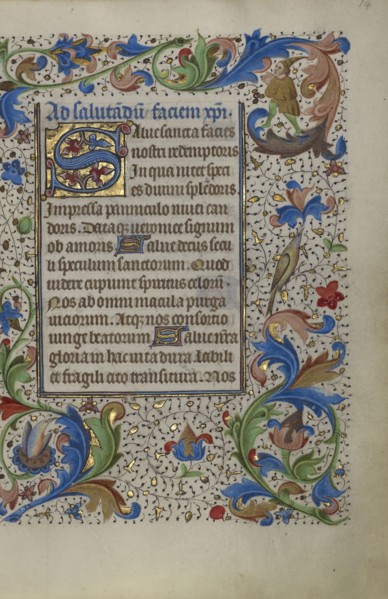 14
Ad salutādū faciem xpi.
Salue sancta facies
nostri redemptoris
In qua nitet speci
es diuini splēdoris.
Impressa panniculo niuei can
doris. Dataq; ueronice signum
ob amoris. Salue decus secu
li speculum sanctorum. Quod
uidere cupiunt spiritus celorū
Nos ab omni macula purga
uiciorum. Atq; nos consortio
iunge beatorum. Salue nr̄a
gloria in hac uita dura. Labili
et fragili cito transitura. Nos